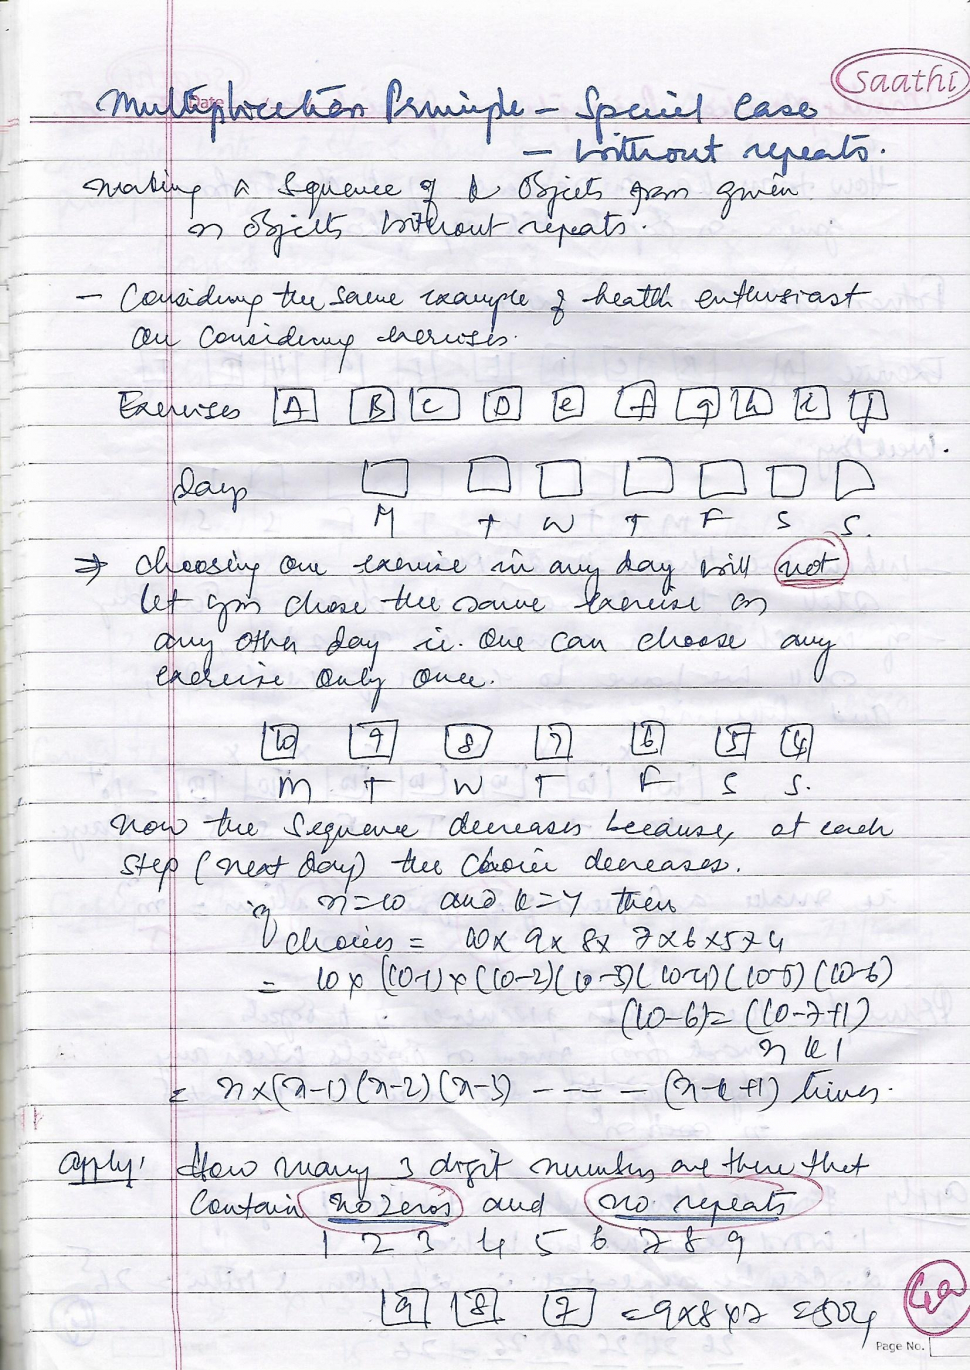 saathi
Date
Multiplication Principle - Special Case
- Without repeats.
making a Sequence of k Objects from given
n objects without repeats.
- Considering the same example of health enthusiast
on considering exercises.
Exercises A B C D e f g h i j
days
M T W T F S S.
⇒ Choosing one exercise in any day will not
let you chose the same exercise on
any other day ie. One can choose any
exercise only once.
10 9 8 7 6 5 4
M T W T F S S.
Now the Sequence decreases because, at each
step (next day) the choice decreases.
if n=10 and k=7 then
choices = 10 x 9 x 8 x 7 x 6 x 5 x 4
= 10 x (10-1) x (10-2) (10-3) (10-4) (10-5) (10-6)
(10-6) = (10-7+1)
n k 1
= n x (n-1) (n-2) (n-3) ---- (n-k+1) times.
Apply! How many 3 digit numbers are there that
Contain no zeros and no repeats
1 2 3 4 5 6 7 8 9
9 8 7 = 9 x 8 x 7 = 504
Page No.